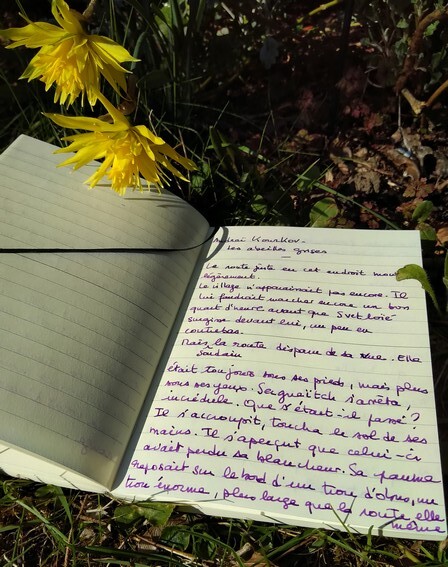 Andreï Kourkov.
Les abeilles grises
La route juste en cet endroit montait
légèrement.
Le village n'apparaissait pas encore. Il
lui faudrait marcher encore un bon
quart d'heure avant que Svetloïé
surgisse devant lui, un peu en
contrebas.
Mais la route disparu de sa vue. Elle
soudain
était toujours sous ses pieds, mais plus
sous ses yeux. Sergueïtch s'arrêta,
incrédule. Que s'était-il passé ?
Il s'accroupit, toucha le sol de ses
mains. Il s'aperçut que celui-ci
avait perdu sa blancheur. Sa paume
reposait sur le bord d'un trou d'obus, un
trou énorme, plus large que la route elle
même